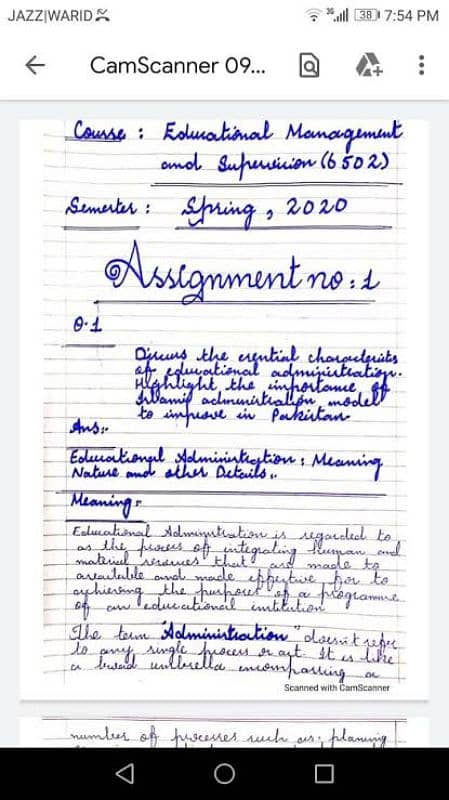 JAZZ|WARID 3G 38 7:54 PM
CamScanner 09...
Course : Educational Management
and Supervision (6502)
Semester : Spring, 2020
Assignment no : 1
Q.1
Discuss the essential characteristics
of educational administration.
Highlight the importance of
Islamic administration model
to improve in Pakistan
Ans:-
Educational Administration : Meaning
Nature and other Details :.
Meaning:-
Educational Administration is regarded to
as the process of integrating human and
material resources that are made to
available and made effective for to
achieving the purposes of a programme
of an educational institution
The term "Administration" doesn't refer
to any single process or act. It is like
a broad umbrella encompassing a
Scanned with CamScanner
number of processes such as: planing